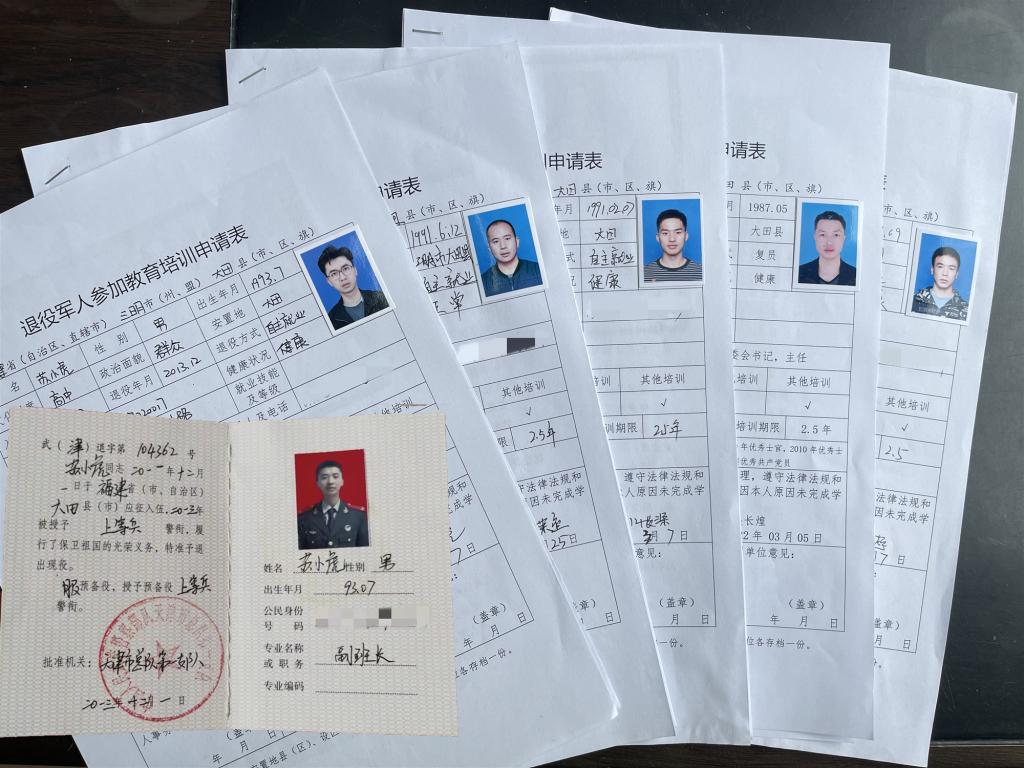 退役军人参加教育培训申请表
省（自治区、直辖市）三明市（州、盟）大田县（市、区、旗）
名 苏小虎 性别 男 出生年月 1993.7
高中 政治面貌 群众 安置地 大田
退役年月 2013.12 退役方式 自主就业
健康状况 健康
就业技能及等级
及电话
武（津）退字第 104362 号
苏小虎同志 二0一一年十二月
一日于福建省（市、自治区）
大田县（市）应征入伍，二0一三年
被授予 上等兵 警衔，履
行了保卫祖国的光荣义务，特准予退
出现役。
服预备役，授予预备役上等兵
警衔。
批准机关：天津市总队第一支队
二0一三年十二月一日
姓名 苏小虎 性别 男
出生年月 93.07
公民身份
号码
专业名称
或职务 副班长
专业编码
年 月 日
申请表
县（市、区、旗）
1991.6.12
自主就业
其他培训
√
限 2.5年
遵守法律法规和
原因未完成学
25日
（盖章）
年 月 日
训申请表
大田县（市、区、旗）
年月 1991.02.07
地 大田
式 自主就业
健康
培训 其他培训
√
期限 2.5年
遵守法律法规和
本人原因未完成学
3月7日
意见：
（盖章）
年 月 日
各存档一份。
申请表
田 县（市、区、旗）
月 1987.05
大田县
式 复员
健康
委会书记，主任
培训 其他培训
√
培训期限 2.5年
年优秀士官，2010年优秀士
优秀共产党员
理，遵守法律法规和
因本人原因未完成学
长煌
22年03月05日
单位意见：
（盖章）
年 月 日
位各存档一份。
表
（市、区、旗）
其他培训
√
2.5
法律法规和
因未完成学
7日
（盖章）
年 月 日
存档一份。